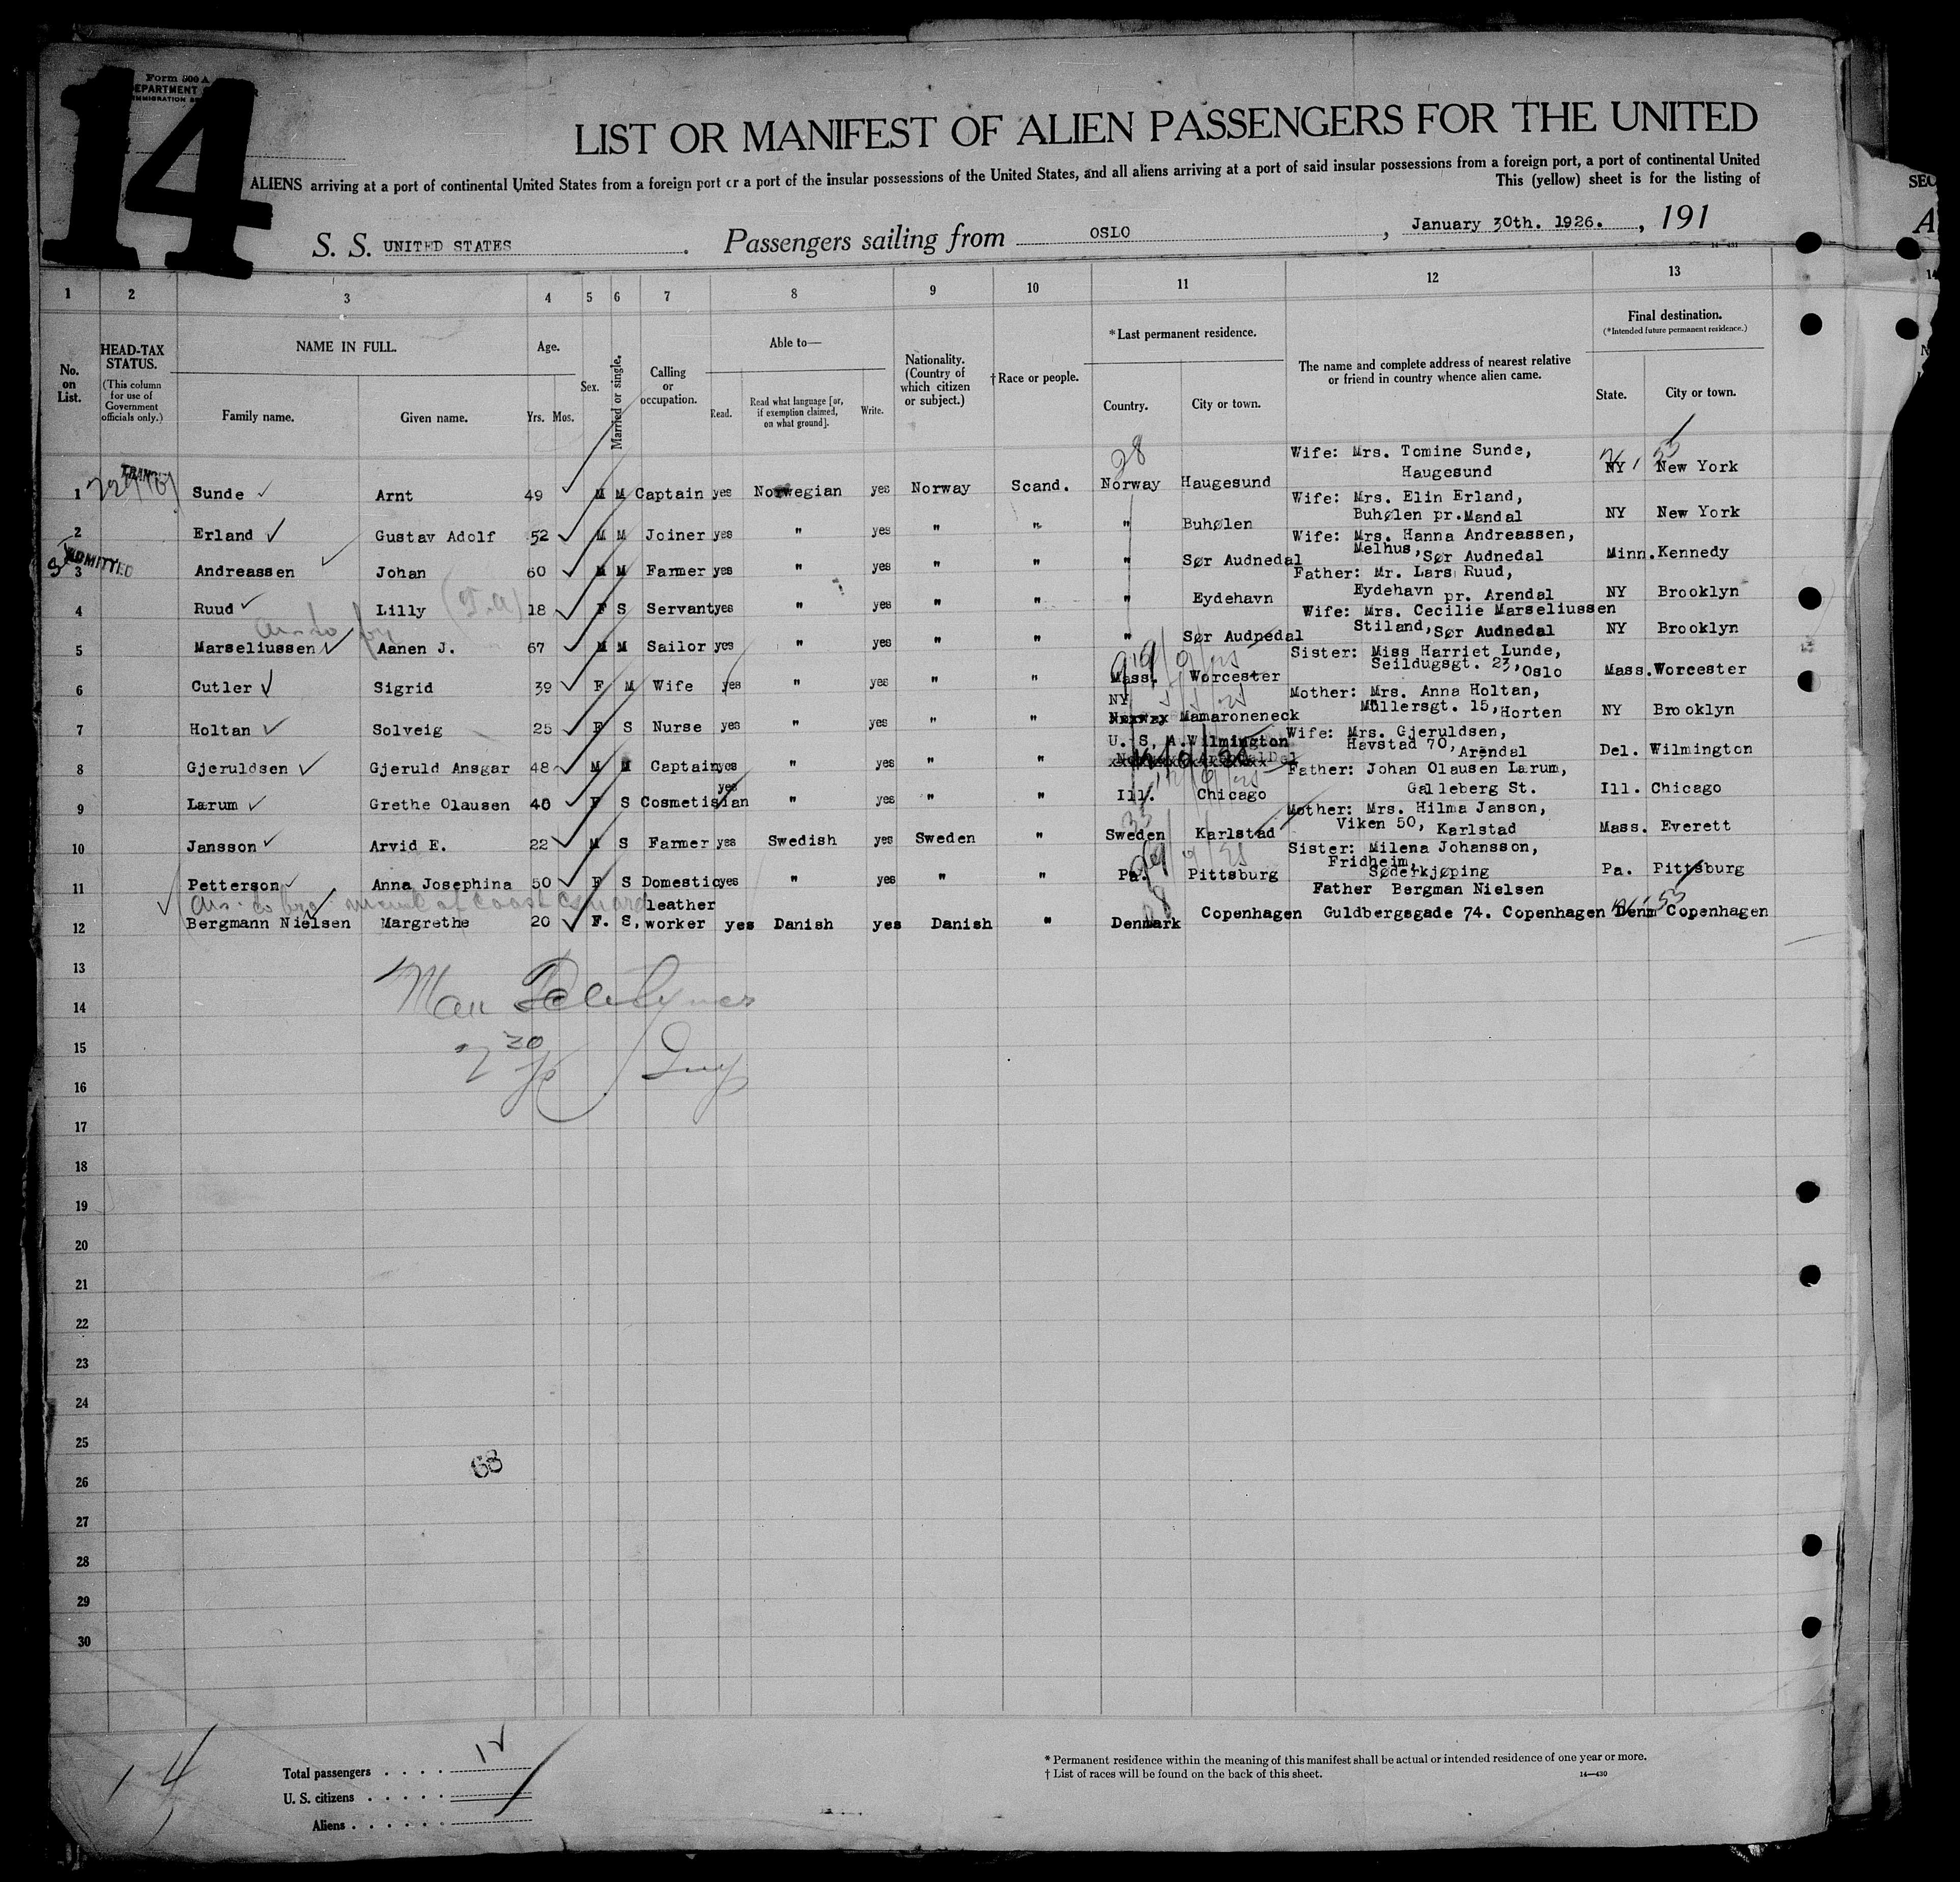 14
Form 500 A
DEPARTMENT
IMMIGRATION
LIST OR MANIFEST OF ALIEN PASSENGERS FOR THE UNITED
ALIENS arriving at a port of continental United States from a foreign port or a port of the insular possessions of the United States, and all aliens arriving at a port of said insular possessions from a foreign port, a port of continental United
This (yellow) sheet is for the listing of
S. S. UNITED STATES. Passengers sailing from OSLO, January 30th. 1926., 191
1 2 3 4 5 6 7 8 9 10 11 12 13
No. on List. HEAD-TAX STATUS. (This column for use of Government officials only.) NAME IN FULL. Family name. Given name. Age. Yrs. Mos. Sex. Married or single. Calling or occupation. Able to— Read. Read what language [or, if exemption claimed, on what ground]. Write. Nationality. (Country of which citizen or subject.) †Race or people. *Last permanent residence. Country. City or town. The name and complete address of nearest relative or friend in country whence alien came. Final destination. (*Intended future permanent residence.) State. City or town.
1 TRANSIT Sunde Arnt 49 M M Captain yes Norwegian yes Norway Scand. 28 Norway Haugesund Wife: Mrs. Tomine Sunde, Haugesund NY New York
2 Erland Gustav Adolf 52 M M Joiner yes " yes " " " Buhølen Wife: Mrs. Elin Erland, Buhølen pr. Mandal NY New York
3 ADMITTED Andreassen Johan 60 M M Farmer yes " yes " " " Sør Audnedal Wife: Mrs. Hanna Andreassen, Melhus, Sør Audnedal Minn. Kennedy
4 Ruud Lilly 18 F S Servant yes " yes " " " Eydehavn Father: Mr. Lars Ruud, Eydehavn pr. Arendal NY Brooklyn
5 Marseliussen Aanen J. 67 M M Sailor yes " yes " " " Sør Audnedal Wife: Mrs. Cecilie Marseliussen Stiland, Sør Audnedal NY Brooklyn
6 Cutler Sigrid 39 F M Wife yes " yes " " Mass. Worcester Sister: Miss Harriet Lunde, Seildugsgt. 23, Oslo Mass. Worcester
7 Holtan Solveig 25 F S Nurse yes " yes " " NY Norway Mamaroneck Mother: Mrs. Anna Holtan, Müllersgt. 15, Horten NY Brooklyn
8 Gjeruldsen Gjeruld Ansgar 48 M M Captain yes " yes " " U. S. A. Wilmington Del Wife: Mrs. Gjeruldsen, Havstad 70, Arendal Del. Wilmington
9 Lærum Grethe Olausen 40 F S Cosmetisian yes " yes " " Ill. Chicago Father: Johan Olausen Lærum, Galleberg St. Ill. Chicago
10 Jansson Arvid E. 22 M S Farmer yes Swedish yes Sweden " Sweden Karlstad Mother: Mrs. Hilma Janson, Viken 50, Karlstad Mass. Everett
11 Petterson Anna Josephina 50 F S Domestic yes " yes " " Pa. Pittsburg Sister: Milena Johansson, Fridheim, Søderkjøping Pa. Pittsburg
12 Bergmann Nielsen Margrethe 20 F. S, leather worker yes Danish yes Danish " Denmark Copenhagen Father Bergman Nielsen Guldbergsgade 74. Copenhagen Denm Copenhagen
13
14
15
16
17
18
19
20
21
22
23
24
25
68
26
27
28
29
30
14
Total passengers 12
U. S. citizens
Aliens
* Permanent residence within the meaning of this manifest shall be actual or intended residence of one year or more.
† List of races will be found on the back of this sheet. 14—430